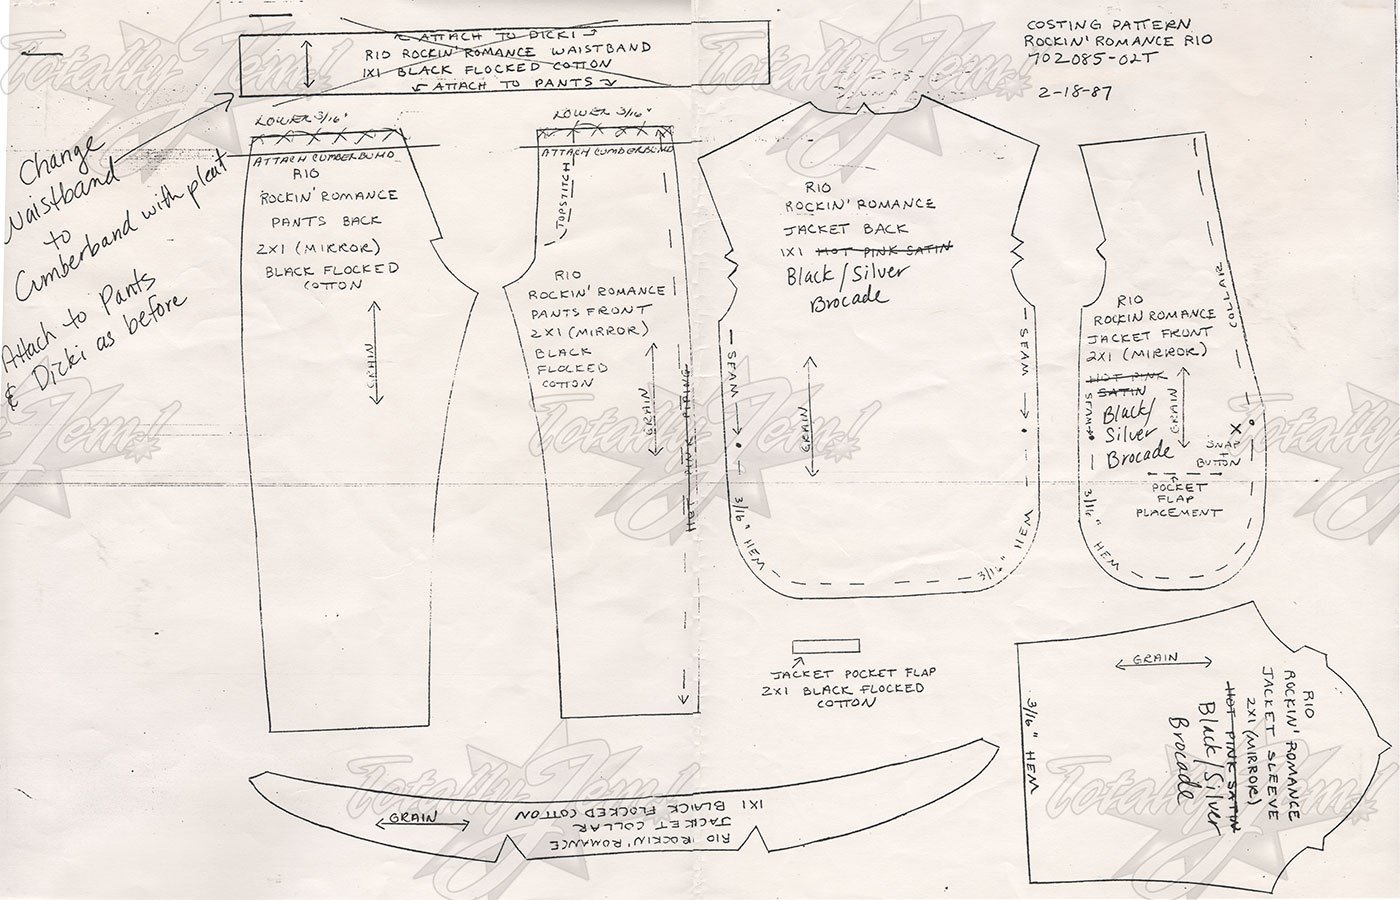 ← ATTACH TO DICKI →
RIO ROCKIN' ROMANCE WAISTBAND
1X1 BLACK FLOCKED COTTON
← ATTACH TO PANTS →
COSTING PATTERN
ROCKIN' ROMANCE RIO
702085-02T
2-18-87
Change
waistband
to
Cumberband with pleat
Attach to Pants
& Dicki as before
LOWER 3/16"
ATTACH CUMBERBUND
RIO
ROCKIN' ROMANCE
PANTS BACK
2X1 (MIRROR)
BLACK FLOCKED
COTTON
GRAIN
LOWER 3/16"
ATTACH CUMBERBUND
TOPSTITCH
RIO
ROCKIN' ROMANCE
PANTS FRONT
2X1 (MIRROR)
BLACK
FLOCKED
COTTON
GRAIN
HOT PINK PIPING
RIO
ROCKIN' ROMANCE
JACKET BACK
1X1 HOT PINK SATIN
Black/Silver
Brocade
SEAM
SEAM
GRAIN
3/16" HEM
3/16" HEM
COLLAR
RIO
ROCKIN ROMANCE
JACKET FRONT
2X1 (MIRROR)
HOT PINK
SATIN
Black/
Silver
Brocade
SEAM
GRAIN
X
SNAP
+
BUTTON
POCKET
FLAP
PLACEMENT
3/16" HEM
JACKET POCKET FLAP
2X1 BLACK FLOCKED
COTTON
GRAIN
RIO
ROCKIN' ROMANCE
JACKET SLEEVE
2X1 (MIRROR)
HOT PINK SATIN
Black/Silver
Brocade
3/16" HEM
GRAIN
RIO ROCKIN' ROMANCE
JACKET COLLAR
BLACK FLOCKED COTTON
1X1
Totally Jem!
Totally Jem!
Totally Jem!
Totally Jem!
Totally Jem!
Totally Jem!